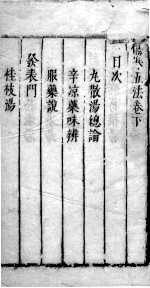 傷寒五法卷下
目次
九散湯總論
辛凉藥味辨
服藥說
發表門
桂枝湯